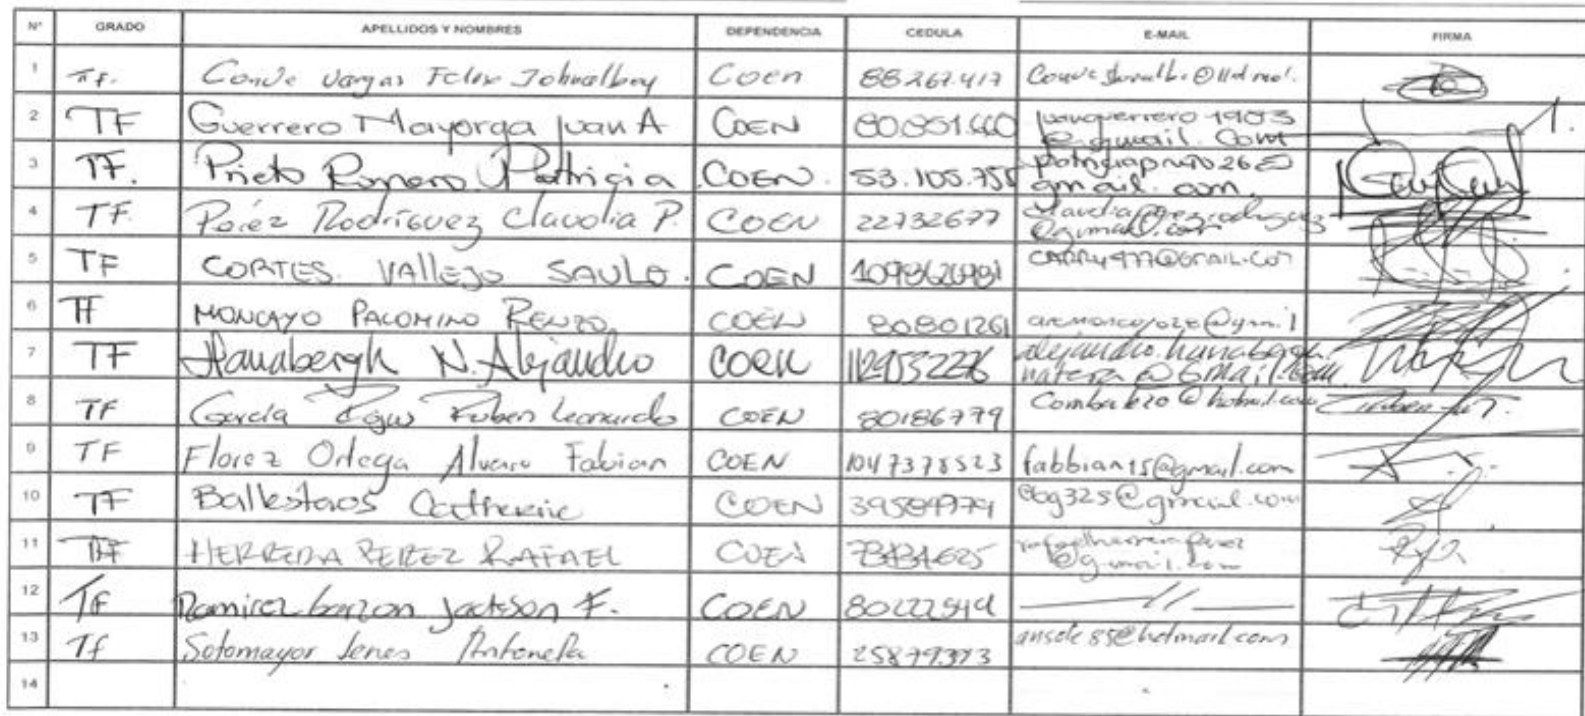 N° GRADO APELLIDOS Y NOMBRES DEPENDENCIA CEDULA E-MAIL FIRMA
1 TF. Conde Vargas Felix Johnalbey Coen 88.267.417
2 TF Guerrero Mayorga Juan A COEN 80.851.660 juanguerrero1983
@gmail.com
3 TF. Prieto Romero Patricia COEN. 53.105.755
gmail.com.
4 TF. Peréz Rodríguez Claudia P. COEN 22732677 claudiaperezrodriguez
@gmail.com
5 TF CORTES. VALLEJO SAULO. COEN
6 TF MONCAYO PALOMINO RENZO COEN 80801261
7 TF Hanabergh N. Alejandro COEN 1129532276 alejandro.hanabergh.
natera@Gmail.com
8 TF García Rojas Ruben Leonardo COEN 80186779 @hotmail.com
9 TF Florez Ortega Alvaro Fabian COEN 1047378523 fabbian15@gmail.com
10 TF Ballestaos Catherine COEN 39589779 cbg325@gmail.com
11 TF HERRERA PEREZ RAFAEL COEN rafaelherreraperez
@gmail.com
12 TF Ramirez Jackson F. COEN
13 Tf Sotomayor Jenes Antonella COEN 25879.373 ansole85@hotmail.com
14